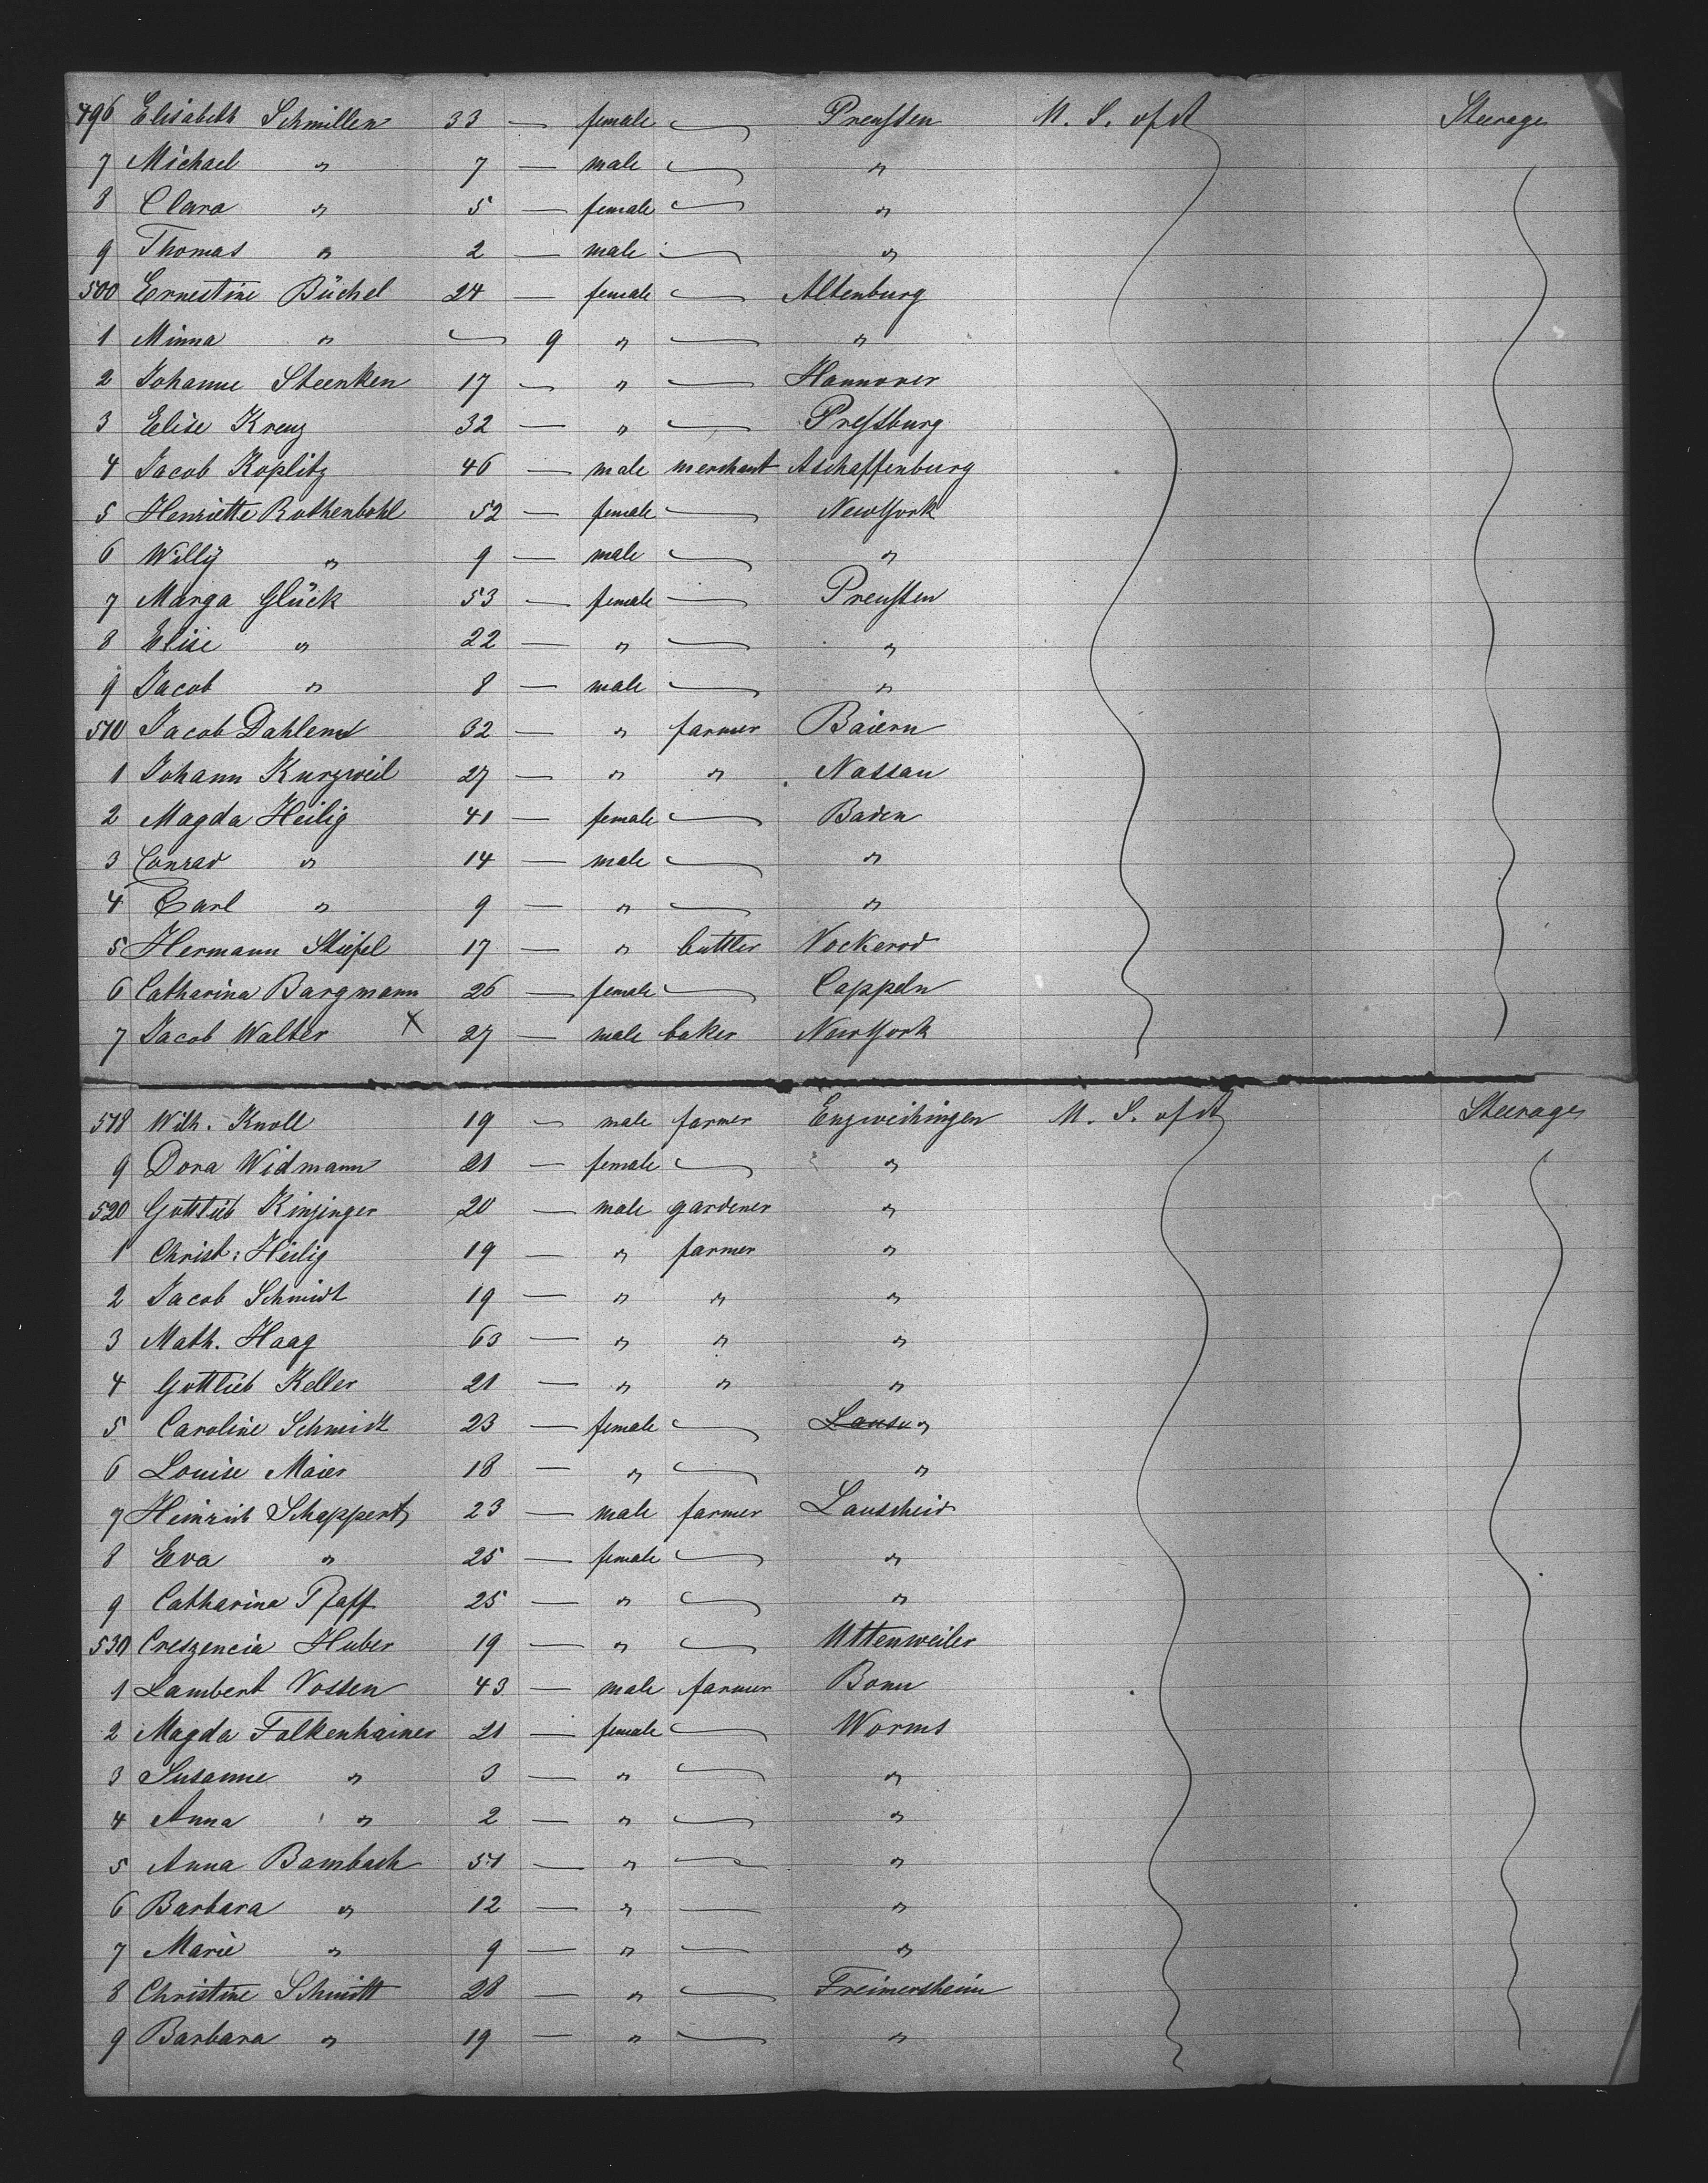 496 Elisabeth Schmillen 33 — female — Preußen U. S. of A Steerage
7 Michael " 7 — male — "
8 Clara " 5 — female — "
9 Thomas " 2 — male — "
500 Ernestine Büchel 24 — female — Altenburg
1 Minna " — 9 " — "
2 Johanne Steenken 17 — " — Hannover
3 Elise Kreuz 32 — " — Preßburg
4 Jacob Koplitz 46 — male merchant Aschaffenburg
5 Henriette Rothenbohl 52 — female — New York
6 Willy " 9 — male — "
7 Marga Glück 53 — female — Preußen
8 Elise " 22 — " — "
9 Jacob " 8 — male — "
510 Jacob Dahlem 32 — " farmer Baiern
1 Johann Kurzweil 27 — " " Nassau
2 Magda Heilig 41 — female — Baden
3 Conrad " 14 — male — "
4 Carl " 9 — " — "
5 Hermann Stiefel 17 — " buttler Nockerod
6 Catharina Bargmann 26 — female — Cappeln
7 Jacob Walter X 27 — male baker New York
518 Wilh. Knoll 19 — male farmer Enzweihingen U. S. of A Steerage
9 Dora Widmann 21 — female — "
520 Gottlieb Kinzinger 20 — male gardener "
1 Christ: Heilig 19 — " farmer "
2 Jacob Schmidt 19 — " " "
3 Math. Haag 63 — " " "
4 Gottlieb Keller 21 — " " "
5 Caroline Schmidt 23 — female — "
6 Louise Maier 18 — " — "
7 Heinrich Schappert 23 — male farmer Lauscheid
8 Eva " 25 — female — "
9 Catharina Pfaff 25 — " — "
530 Creszencia Huber 19 — " — Uttenweiler
1 Lambert Vossen 43 — male farmer Bonn
2 Magda Falkenhainer 21 — female — Worms
3 Susanne " 3 — " — "
4 Anna " 2 — " — "
5 Anna Bambach 51 — " — "
6 Barbara " 12 — " — "
7 Marie " 9 — " — "
8 Christine Schmitt 28 — " — Freimersheim
9 Barbara " 19 — " — "